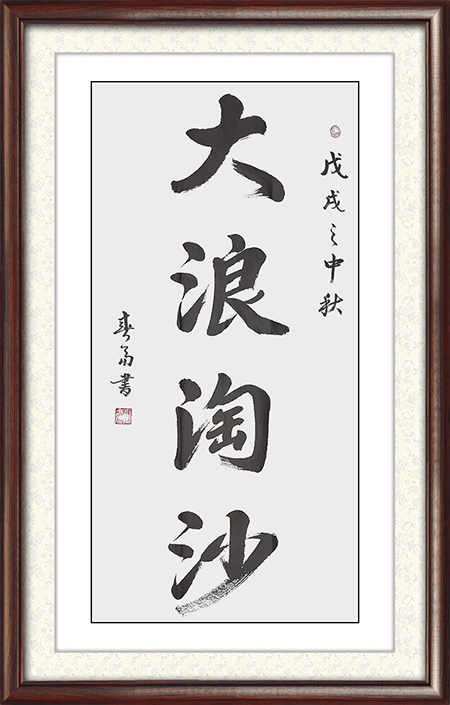 戊戌之中秋
大浪淘沙
书